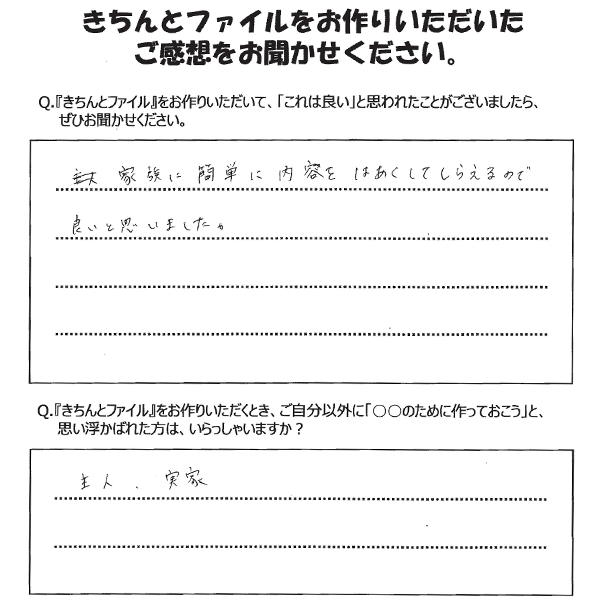 きちんとファイルをお作りいただいた
ご感想をお聞かせください。
Q.『きちんとファイル』をお作りいただいて、「これは良い」と思われたことがございましたら、
ぜひお聞かせください。
家族に簡単に内容をはあくしてしらえるので
良いと思いました。
Q.『きちんとファイル』をお作りいただくとき、ご自分以外に「○○のために作っておこう」と、
思い浮かばれた方は、いらっしゃいますか？
主人、実家